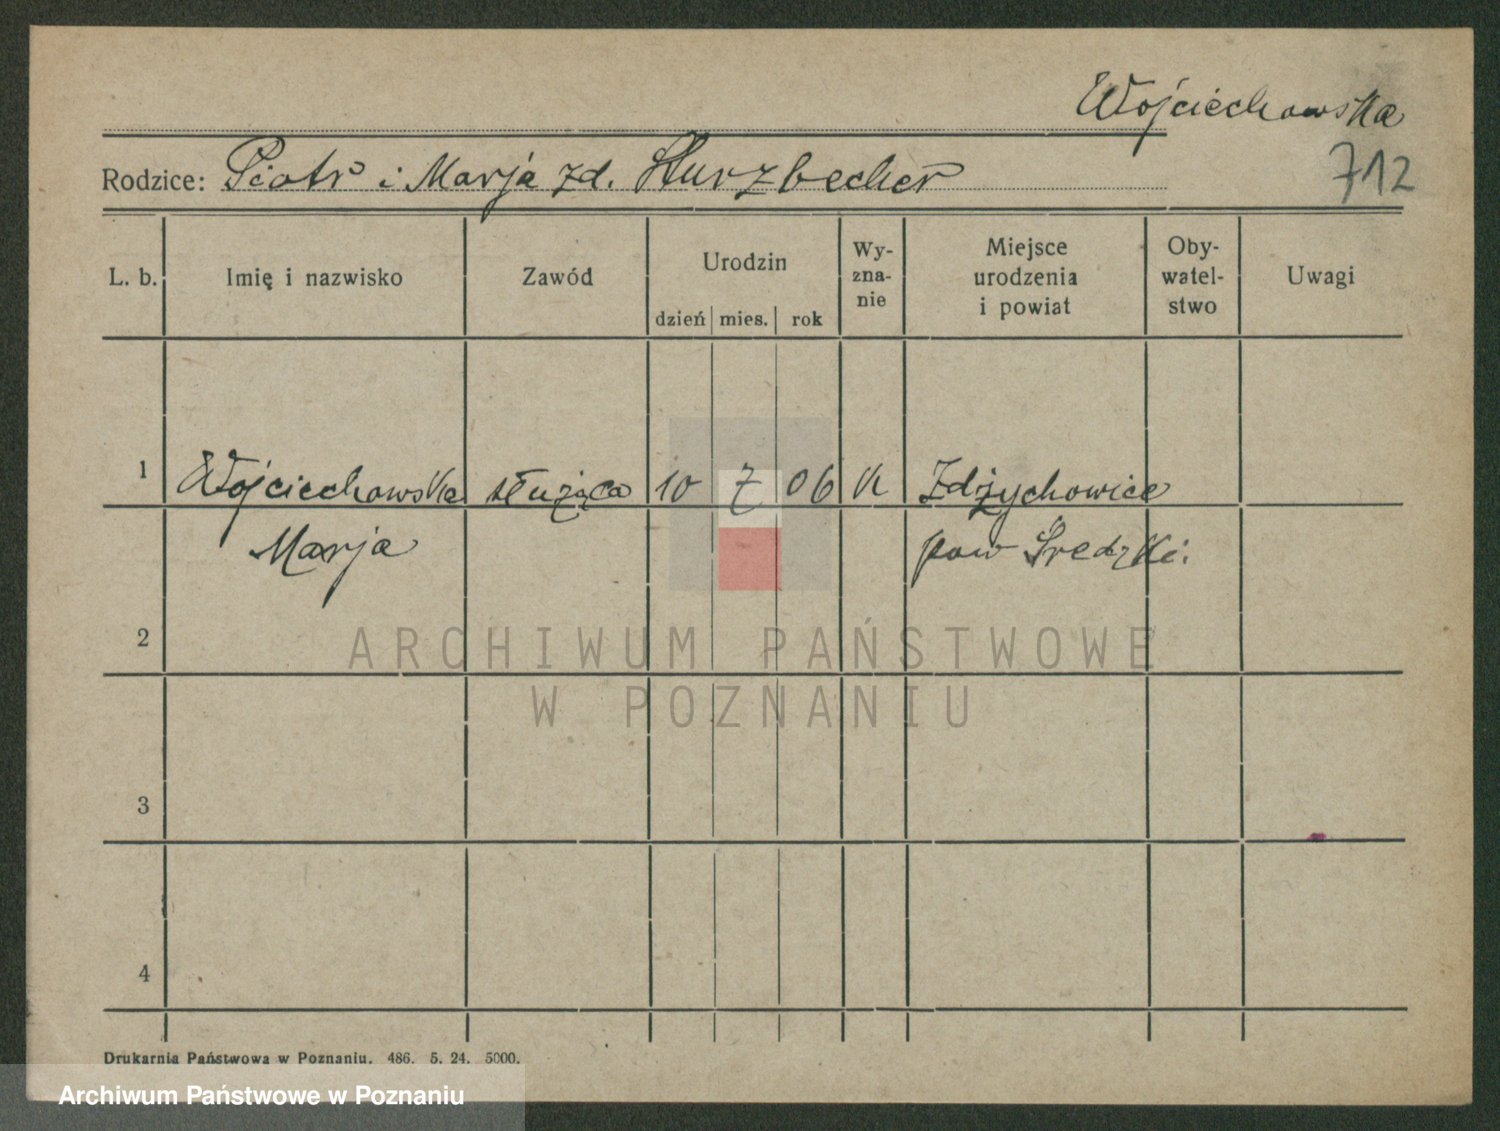 Wojciechowska
712
Rodzice: Piotr i Marja zd. Sturzbecher
L. b. Imię i nazwisko Zawód Urodzin dzień mies. rok Wy-zna-nie Miejsce urodzenia i powiat Oby-watel-stwo Uwagi
1 Wojciechowska służąca 10 7 06 k Zdżychowice
Marja pow Sredzki.
2
ARCHIWUM PAŃSTWOWE
W POZNANIU
3
4
Drukarnia Państwowa w Poznaniu. 486. 5. 24. 5000.
Archiwum Państwowe w Poznaniu